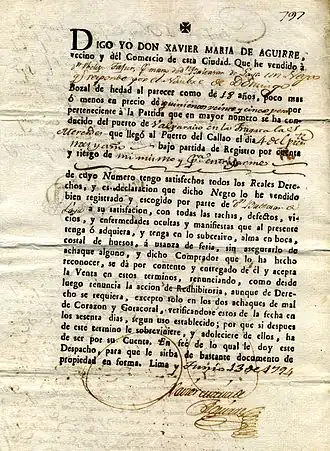 797
DIGO YO DON XAVIER MARIA DE AGUIRRE,
vecino y del Comercio de esta Ciudad. Que he vendido à
un Negro
Bozal de hedad al parecer como de 18 años, poco mas
ò menos en precio de quinientos veinte y cinco pesos
perteneciente à la Partida que en mayor número se ha con-
ducido del puerto de Valparaiso en la Fragata la
Mercedes que llegó al Puerto del Callao el dia 4 de
bajo partida de Registro por cuenta
y riesgo de mi mismo y
de cuyo Numero tengo satisfechos todos los Reales Dere-
chos, y es declaracion que dicho Negro lo he vendido
bien registrado y escogido por parte de
à su satisfacion, con todas las tachas, defectos, vi-
cios, y enfermedades ocultas y manifiestas que al presente
tenga ò adquiera, y tenga en lo subcesivo, alma en boca,
costal de huesos, á usanza de feria, sin asegurarlo de
achaque alguno, y dicho Comprador que lo ha hecho
reconocer, se dá por contento y entregado de él y acepta
la Venta en estos terminos, renunciando, como desde
luego renuncia la accion de Redhibitoria, aunque de Dere-
cho se requiera, excepto solo en los dos achaques de mal
de Corazon y Gotacoral, verificandose estos de la fecha en
los sesenta dias, segun uso establecido; por que si despues
de este termino le sobreviniere, y adoleciere de ellos, ha
de ser por su Cuenta. En fee de lo qual le doy este
Despacho, para que le sirba de bastante documento de
propiedad en forma. Lima y Junio 13 de 1794
Xavier Maria de
Aguirre